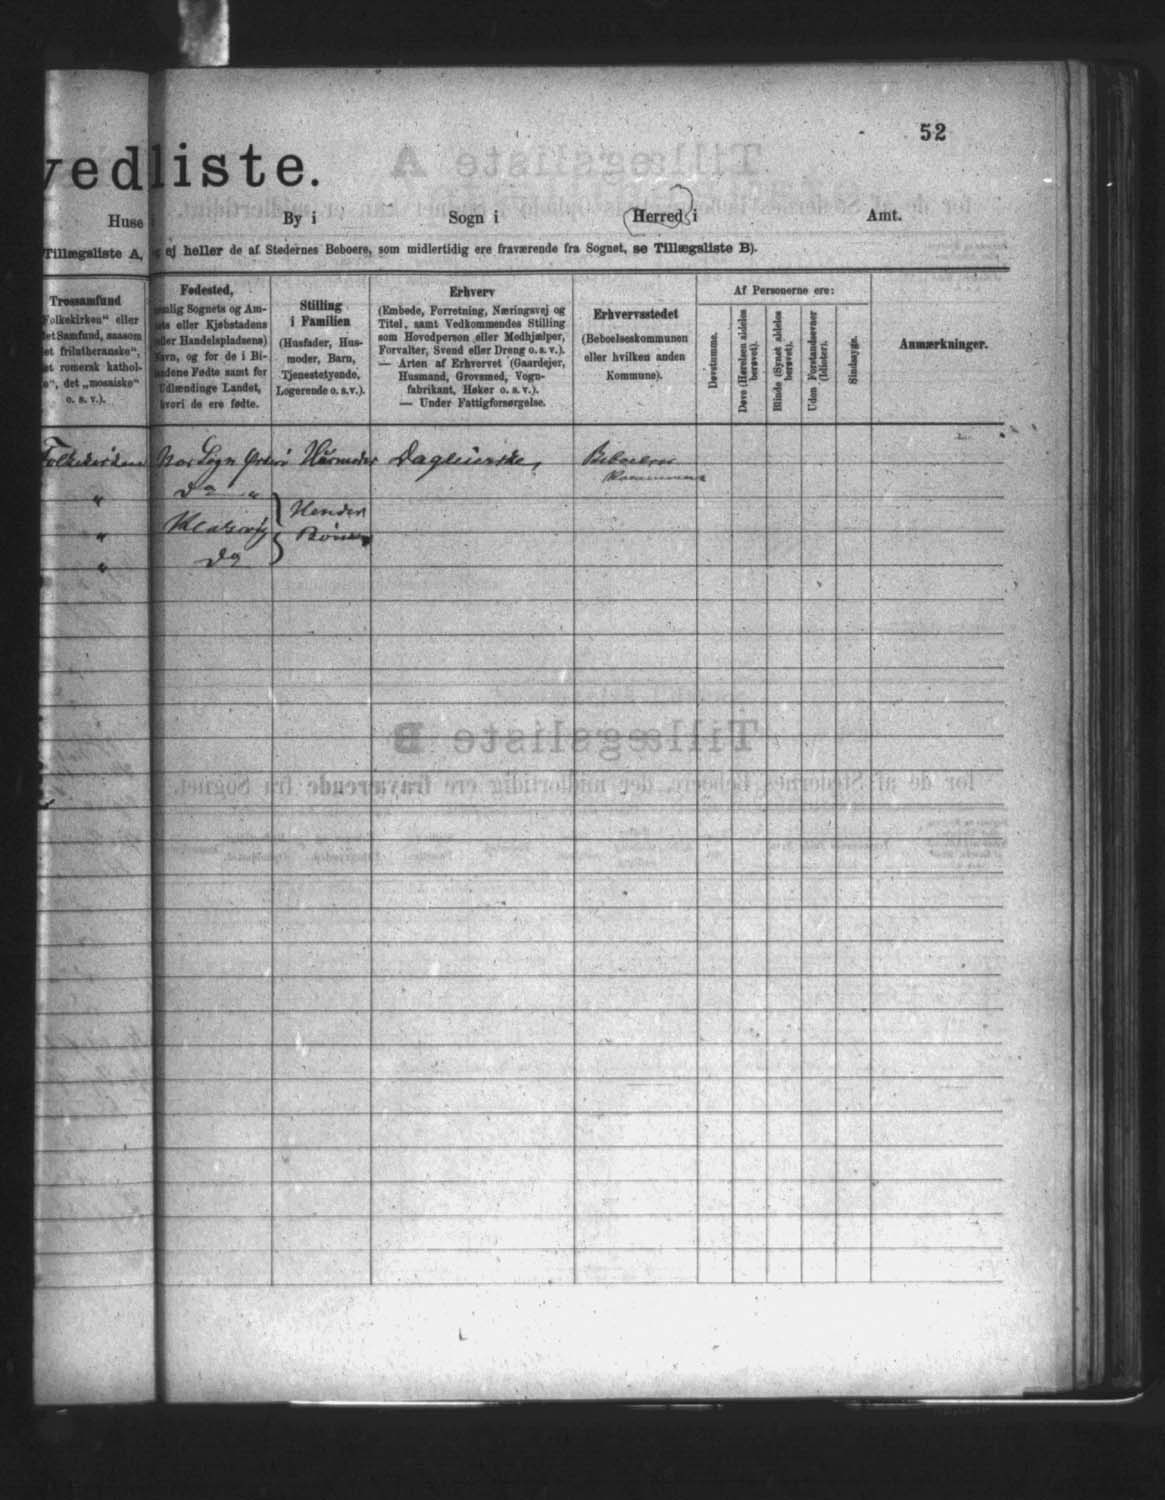 52
vedliste.
Huse i By i Sogn i Herred i Amt.
Tillægsliste A, ej heller de af Stedernes Beboere, som midlertidig ere fraværende fra Sognet, se Tillægsliste B).
Trossamfund
Folkekirken" eller
et Samfund, saasom
et frilutheranske",
et romersk kathol-
e", det „mosaiske"
o. s. v.).
Fødested,
nlig Sognets og Am-
ts eller Kjøbstadens
ller Handelspladsens)
avn, og for de i Bi-
ndene Fødte samt for
Udlændinge Landet,
hvori de ere fødte.
Stilling
i Familien
(Husfader, Hus-
moder, Barn,
Tjenestetyende,
Logerende o. s.v.).
Erhverv
(Embede, Forretning, Næringsvej og
Titel, samt Vedkommendes Stilling
som Hovedperson eller Medhjælper,
Forvalter, Svend eller Dreng o. s. v.).
— Arten af Erhvervet (Gaardejer,
Husmand, Grovsmed, Vogn-
fabrikant, Høker o. s. v.).
— Under Fattigforsørgelse.
Erhvervsstedet
(Beboelseskommunen
eller hvilken anden
Kommune).
Af Personerne ere:
Døvstumme.
Døve (Hørelsen aldeles
berøvet).
Blinde (Synet aldeles
berøvet).
Uden Forstandsevner
(Idioter).
Sindssyge.
Anmærkninger.
Folkekirken Sogn Husmoder
" Do "
" Hendes
Børn
" Do
Tillægsliste A
Tillægsliste B
for de af Stedernes Beboere, der midlertidig ere fraværende fra Sognet.